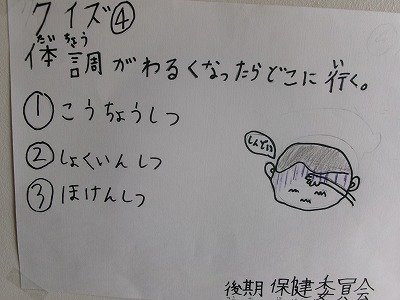 クイズ④
体調がわるくなったらどこに行く。
①こうちょうしつ
②しょくいんしつ
③ほけんしつ
しんどい
後期 保健委員会